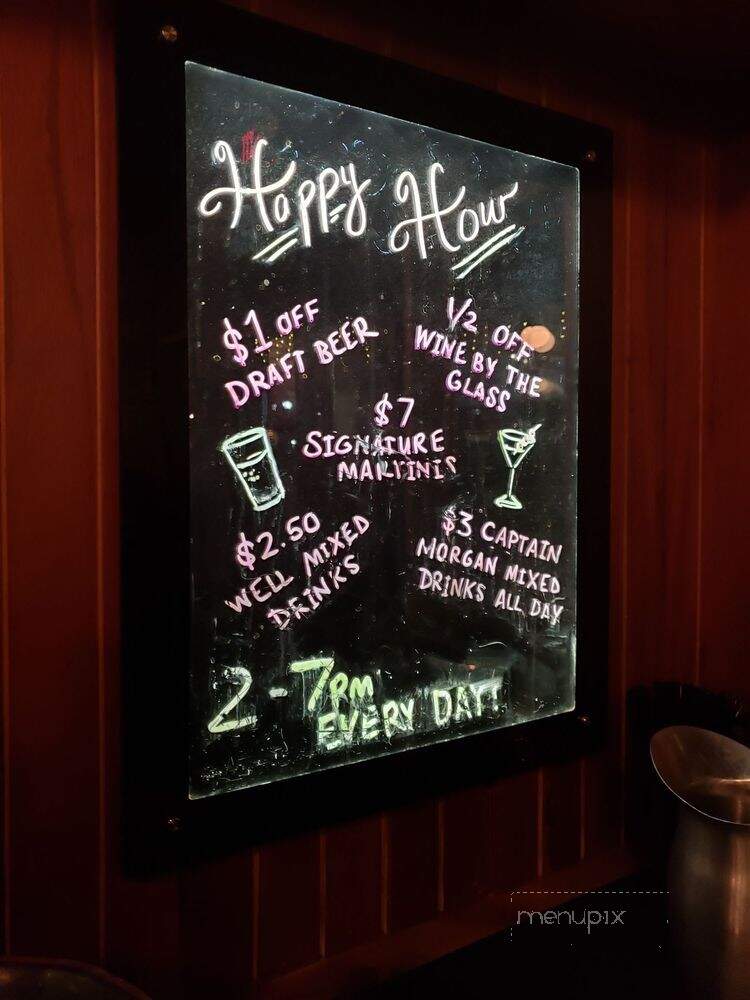 Happy Hour
$1 OFF
DRAFT BEER
1/2 OFF
WINE BY THE
GLASS
$7
SIGNATURE
MARTINIS
$2.50
WELL MIXED
DRINKS
$3 CAPTAIN
MORGAN MIXED
DRINKS ALL DAY
2-7PM
EVERY DAY!
menupix